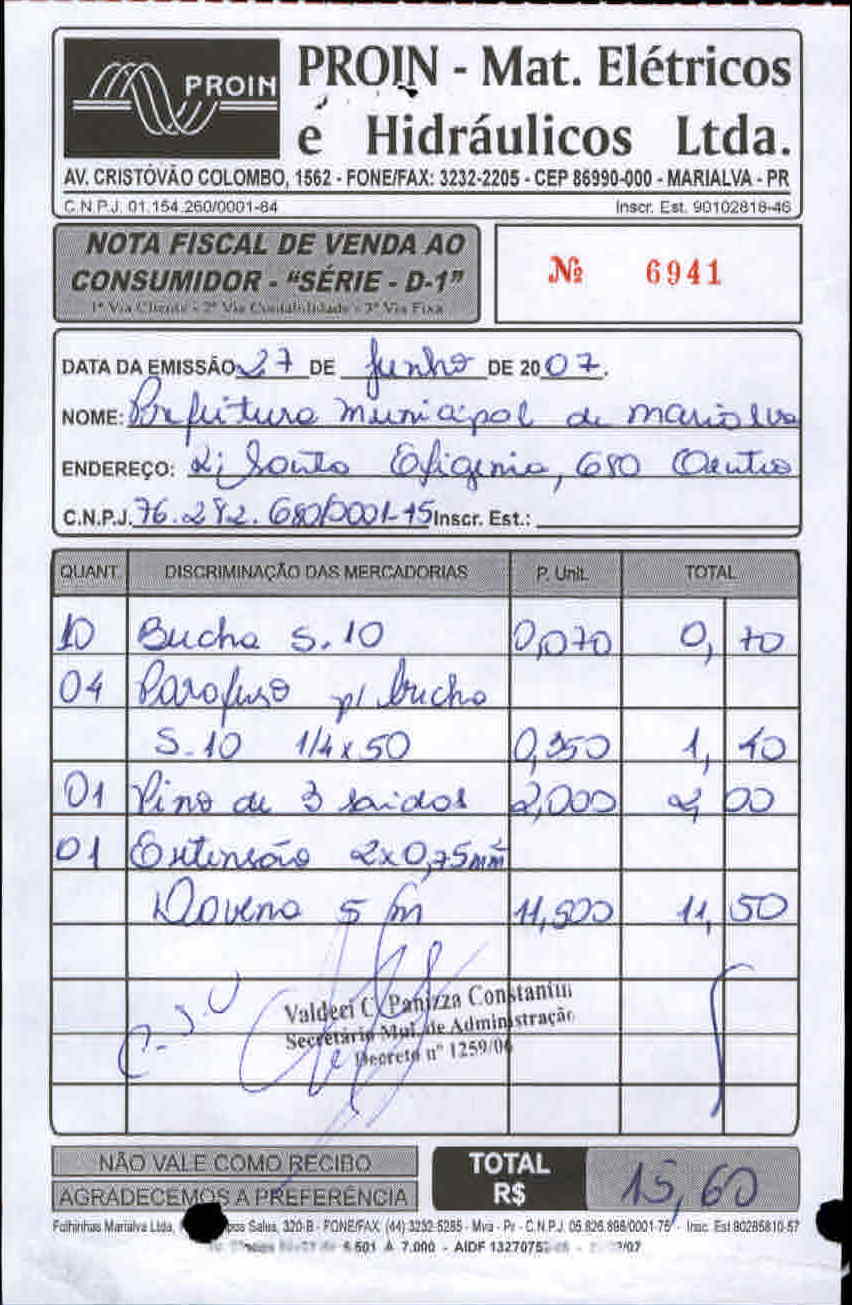 PROIN
PROIN - Mat. Elétricos
e Hidráulicos Ltda.
AV. CRISTÓVÃO COLOMBO, 1562 - FONE/FAX: 3232-2205 - CEP 86990-000 - MARIALVA - PR
C.N.P.J. 01.154.260/0001-84 Inscr. Est. 90102818-46
NOTA FISCAL DE VENDA AO
CONSUMIDOR - "SÉRIE - D-1"
1ª Via Cliente - 2ª Via Contabilidade - 3ª Via Fixa
Nº 6941
DATA DA EMISSÃO 27 DE Junho DE 2007.
NOME: Prefeitura municipal de marialva
ENDEREÇO: R; Santa Efigenia, 680 Centro
C.N.P.J. 76.282.680/0001-45 Inscr. Est.:
QUANT. DISCRIMINAÇÃO DAS MERCADORIAS P. Unit. TOTAL
10 Bucha S.10 0,070 0,70
04 Parafuso p/ bucha
S.10 1/4x50 0,350 1,40
01 Pino de 3 saidas 2,000 2,00
01 Extensão 2x0,75mm²
Daveno 5 m 11,500 11,50
Valdeci C. Panizza Constantini
Secretário Mul. de Administração
Decreto nº 1259/06
NÃO VALE COMO RECIBO
AGRADECEMOS A PREFERÊNCIA
TOTAL
R$ 15,60
Folhinhas Marialva Ltda. Sales, 320-B - FONE/FAX (44) 3232-5285 - Mva - Pr - C.N.P.J. 05.826.898/0001-75 - Insc. Est 90285810-57
6.501 A 7.000 - AIDF 1327075